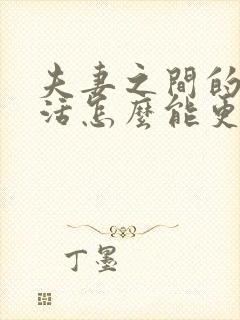 夫妻之間的
活怎麼能更
丁墨